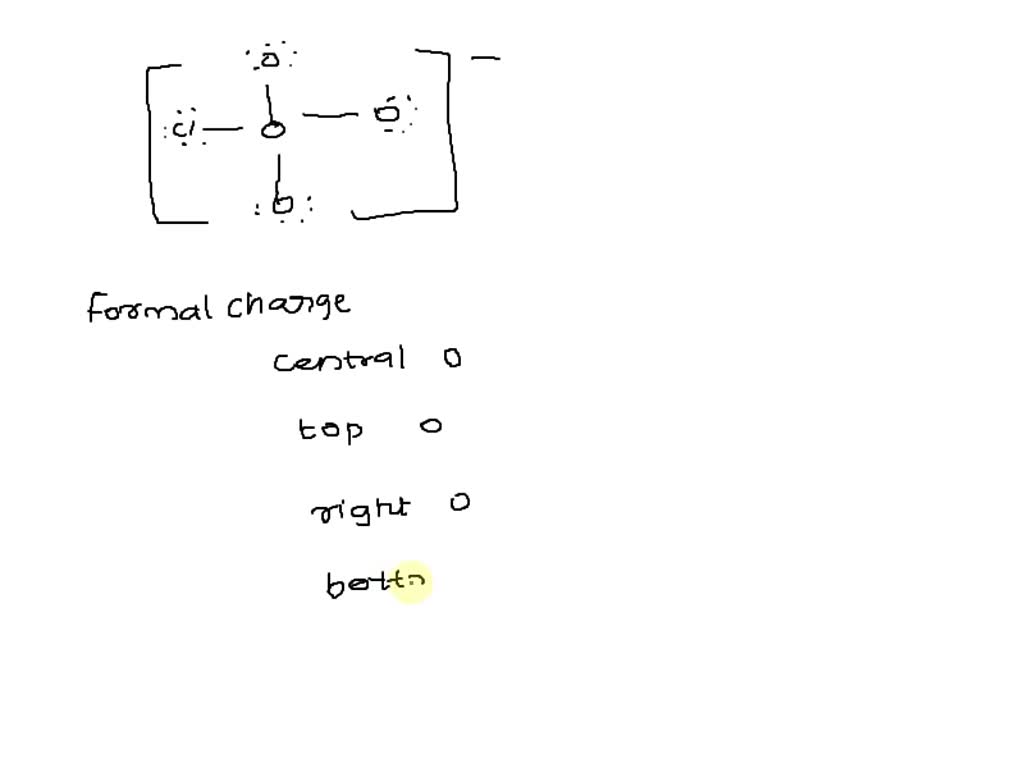 O
Cl O O
O
Formal charge
central O
top O
right O
botto